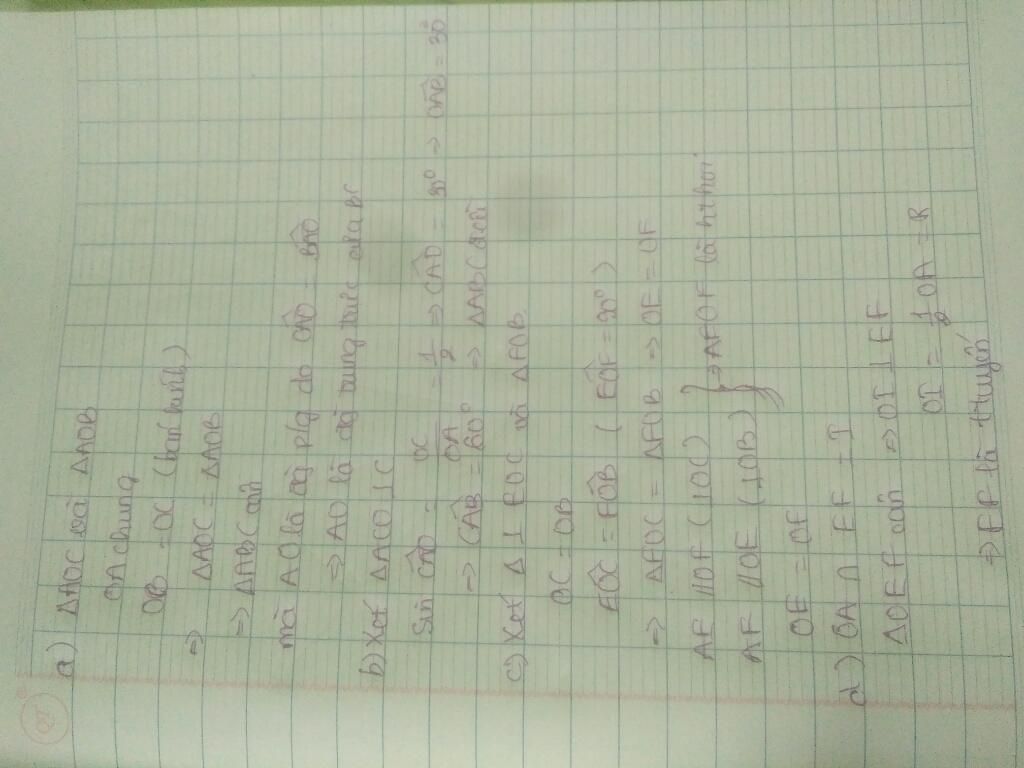 a) ΔAOC và ΔAOB
OA chung
OB = OC (bán kính)
⇒ ΔAOC = ΔAOB
⇒ ΔABC cân
mà AO là đg p/g do CAO = BAO
⇒ AO là đg trung trực của BC
b) Xét ΔACO ⊥ C
Sin CAO = OC/OA = 1/2 ⇒ CAO = 30° ⇒ OAB = 30
⇒ CAB = 60° ⇒ ΔABC đều
c) Xét Δ ⊥ EOC và ΔFOB
OC = OB
EOC = FOB ( EOF = 90°)
⇒ ΔEOC = ΔFOB ⇒ OE = OF
AE // OF (⊥OC)
AF // OE (⊥OB) } ⇒ AEOF là hthoi
OE = OF
d) OA ∩ EF = I
ΔOEF cân ⇒ OI ⊥ EF
OI = 1/2 OA = R
⇒ EF là t/tuyến